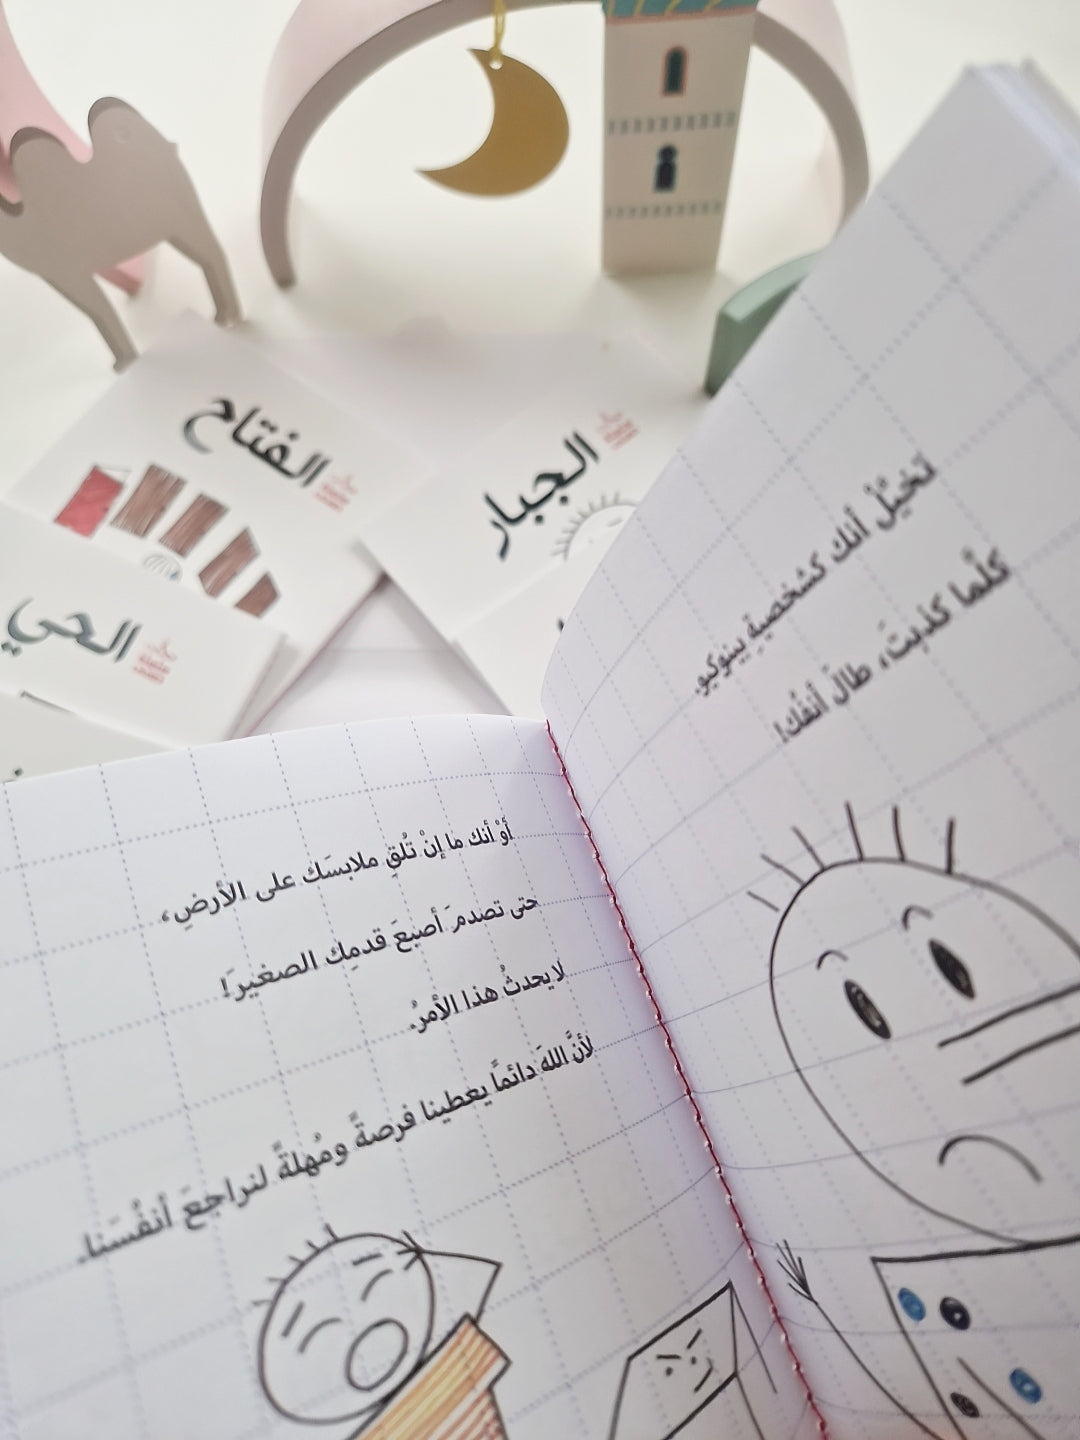 الفتاح
الجبار
الحي
تخيَّلْ أنك كشخصيةِ بينوكيو.
كلَّما كذبتَ، طالَ أنفُك!
أوْ أنك ما إنْ تُلقِ ملابسَك على الأرضِ،
حتى تصدمَ أصبعَ قدمِك الصغيرَ!
لا يحدثُ هذا الأمرُ.
لأنَّ اللهَ دائماً يعطينا فرصةً ومُهلةً لنراجعَ أنفُسَنا.